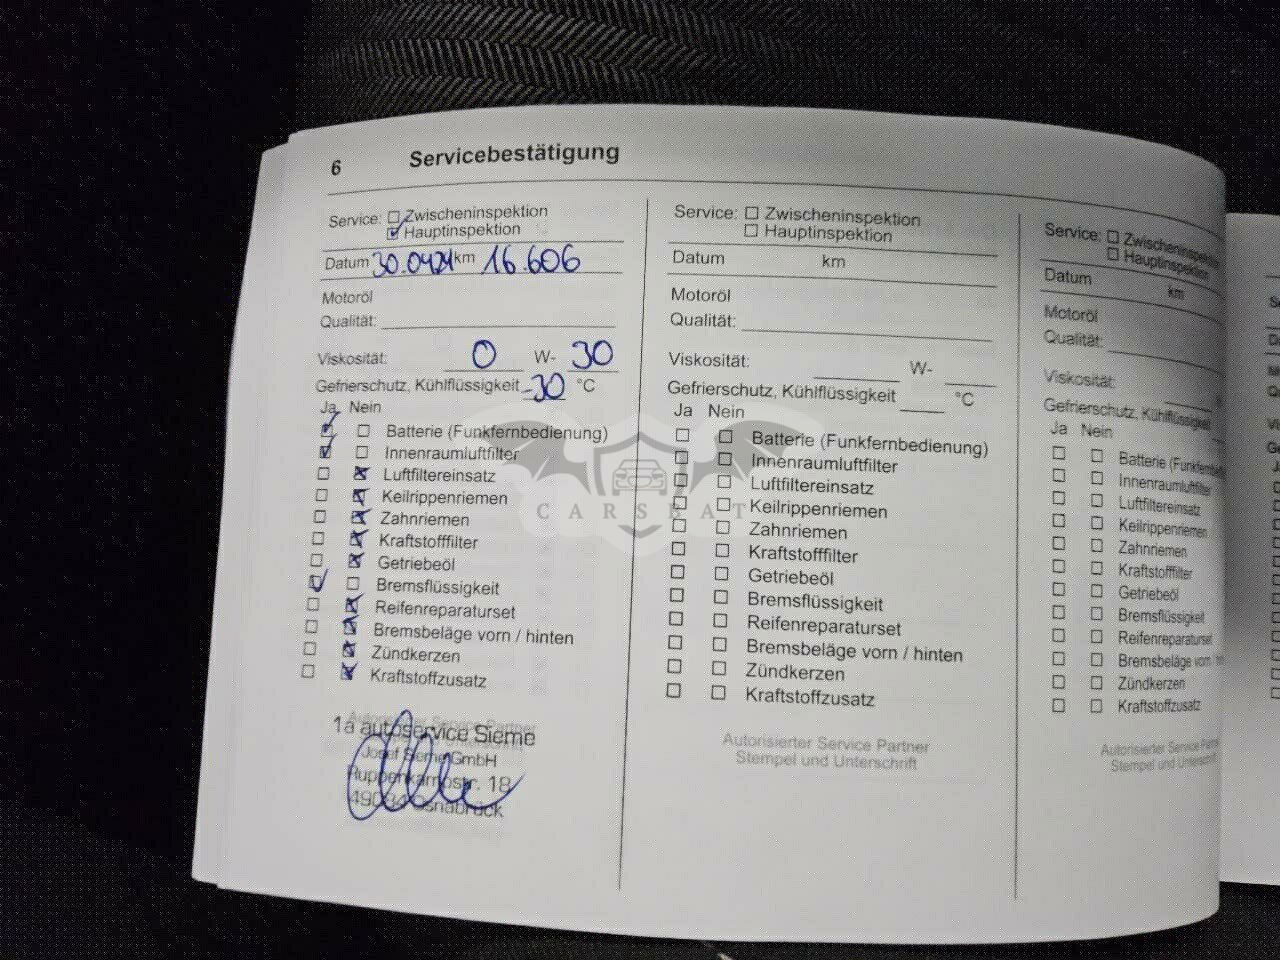 6 Servicebestätigung
Service: Zwischeninspektion
Hauptinspektion
Datum 30.0424 km 16.606
Motoröl
Qualität:
Viskosität: 0 W- 30
Gefrierschutz, Kühlflüssigkeit -30 °C
Ja Nein
Batterie (Funkfernbedienung)
Innenraumluftfilter
Luftfiltereinsatz
Keilrippenriemen
Zahnriemen
Kraftstofffilter
Getriebeöl
Bremsflüssigkeit
Reifenreparaturset
Bremsbeläge vorn / hinten
Zündkerzen
Kraftstoffzusatz
Autorisierter Service Partner
1a autoservice Sieme
Josef Sieme GmbH
Ruppenkampstr. 18
Osnabrück
Service: Zwischeninspektion
Hauptinspektion
Datum km
Motoröl
Qualität:
Viskosität: W-
Gefrierschutz, Kühlflüssigkeit °C
Ja Nein
Batterie (Funkfernbedienung)
Innenraumluftfilter
Luftfiltereinsatz
Keilrippenriemen
Zahnriemen
Kraftstofffilter
Getriebeöl
Bremsflüssigkeit
Reifenreparaturset
Bremsbeläge vorn / hinten
Zündkerzen
Kraftstoffzusatz
Autorisierter Service Partner
Stempel und Unterschrift
Service: Zwischeninspektion
Hauptinspektion
Datum km
Motoröl
Qualität:
Viskosität:
Gefrierschutz, Kühlflüssigkeit
Ja Nein
Batterie (Funkfernbed
Innenraumluftfilter
Luftfiltereinsatz
Keilrippenriemen
Zahnriemen
Kraftstofffilter
Getriebeöl
Bremsflüssigkeit
Reifenreparaturset
Bremsbeläge vorn
Zündkerzen
Kraftstoffzusatz
Autorisierter Service
Stempel und Unterschrift
CARSBAT